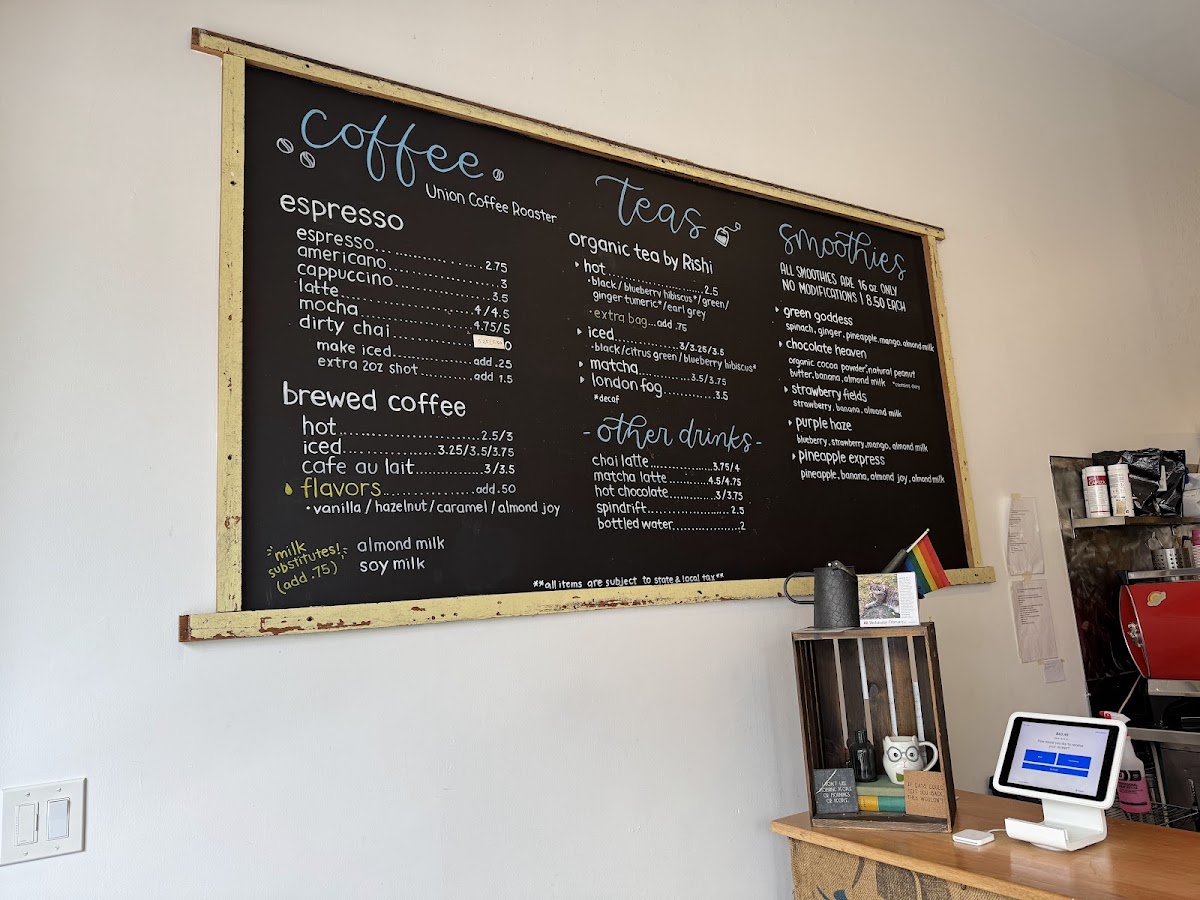 coffee
Union Coffee Roaster
espresso
espresso.......................2.75
americano.......................3
cappuccino.......................3.5
latte.......................4/4.5
mocha.......................4.75/5
dirty chai.......................
make iced..............add .25
extra 2oz shot..........add 1.5
brewed coffee
hot.......................2.5/3
iced..................3.25/3.5/3.75
cafe au lait..............3/3.5
flavors.......................add .50
•vanilla/hazelnut/caramel/almond joy
milk
substitutes!
(add .75)
almond milk
soy milk
teas
organic tea by Rishi
hot.......................2.5
•black/blueberry hibiscus*/green/
ginger tumeric*/earl grey
•extra bag...add .75
iced..............3/3.25/3.5
•black/citrus green/blueberry hibiscus*
matcha..............3.5/3.75
london fog..............3.5
*decaf
-other drinks-
chai latte..............3.75/4
matcha latte..........4.5/4.75
hot chocolate...........3/3.75
spindrift.......................2.5
bottled water..................2
**all items are subject to state & local tax**
smoothies
ALL SMOOTHIES ARE 16 oz ONLY
NO MODIFICATIONS | 8.50 EACH
green goddess
spinach, ginger, pineapple, mango, almond milk
chocolate heaven
organic cocoa powder*, natural peanut
butter, banana, almond milk *contains dairy
strawberry fields
strawberry, banana, almond milk
purple haze
blueberry, strawberry, mango, almond milk
pineapple express
pineapple, banana, almond joy, almond milk
I DON'T LIKE
MORNING PEOPLE
OR MORNINGS
OR PEOPLE
How would you like to receive
your receipt?